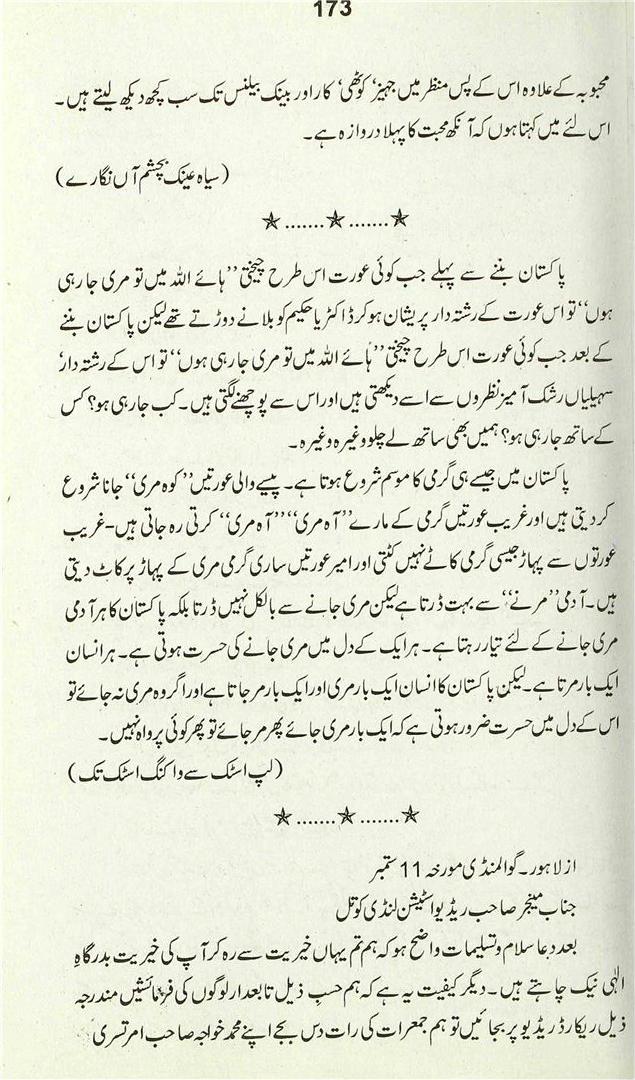 173
محبوبہ کے علاوہ اس کے پس منظر میں جہیز' کوٹھی' کار اور بینک بیلنس تک سب کچھ دیکھ لیتے ہیں۔
اس لئے میں کہتا ہوں کہ آنکھ محبت کا پہلا دروازہ ہے۔
(سیاہ عینک بچشم آں نگارے)
★.......★.......★
پاکستان بننے سے پہلے جب کوئی عورت اس طرح چیختی ’’ہائے اللہ میں تو مری جا رہی
ہوں‘‘ تو اس عورت کے رشتہ دار پریشان ہو کر ڈاکٹر یا حکیم کو بلانے دوڑتے تھے لیکن پاکستان بننے
کے بعد جب کوئی عورت اس طرح چیختی ’’ہائے اللہ میں تو مری جا رہی ہوں‘‘ تو اس کے رشتہ دار'
سہیلیاں رشک آمیز نظروں سے اسے دیکھتی ہیں اور اس سے پوچھنے لگتی ہیں۔ کب جا رہی ہو؟ کس
کے ساتھ جا رہی ہو؟ ہمیں بھی ساتھ لے چلو وغیرہ وغیرہ۔
پاکستان میں جیسے ہی گرمی کا موسم شروع ہوتا ہے۔ پیسے والی عورتیں ’’کوہ مری‘‘ جانا شروع
کر دیتی ہیں اور غریب عورتیں گرمی کے مارے ’’آہ مری‘‘ ’’آہ مری‘‘ کرتی رہ جاتی ہیں-غریب
عورتوں سے پہاڑ جیسی گرمی کاٹے نہیں کٹتی اور امیر عورتیں ساری گرمی مری کے پہاڑ پر کاٹ دیتی
ہیں۔ آدمی ’’مرنے‘‘ سے بہت ڈرتا ہے لیکن مری جانے سے بالکل نہیں ڈرتا بلکہ پاکستان کا ہر آدمی
مری جانے کے لئے تیار رہتا ہے۔ ہر ایک کے دل میں مری جانے کی حسرت ہوتی ہے۔ ہر انسان
ایک بار مرتا ہے۔ لیکن پاکستان کا انسان ایک بار مری اور ایک بار مر جاتا ہے اور اگر وہ مری نہ جائے تو
اس کے دل میں حسرت ضرور ہوتی ہے کہ ایک بار مری جائے پھر مر جائے تو پھر کوئی پرواہ نہیں۔
(لپ اسٹک سے واکنگ اسٹک تک)
★.......★.......★
از لاہور۔ گوالمنڈی مورخہ 11 ستمبر
جناب مینجر صاحب ریڈیو اسٹیشن لنڈی کوتل
بعد دعا سلام و تسلیمات واضح ہو کہ ہم تم یہاں خیریت سے رہ کر آپ کی خیریت بدرگاہِ
الٰہی نیک چاہتے ہیں۔ دیگر کیفیت یہ ہے کہ ہم حسبِ ذیل تابعدار لوگوں کی فرمائشیں مندرجہ
ذیل ریکارڈ ریڈیو پر بجائیں تو ہم جمعرات کی رات دس بجے اپنے محمد خواجہ صاحب امرتسری